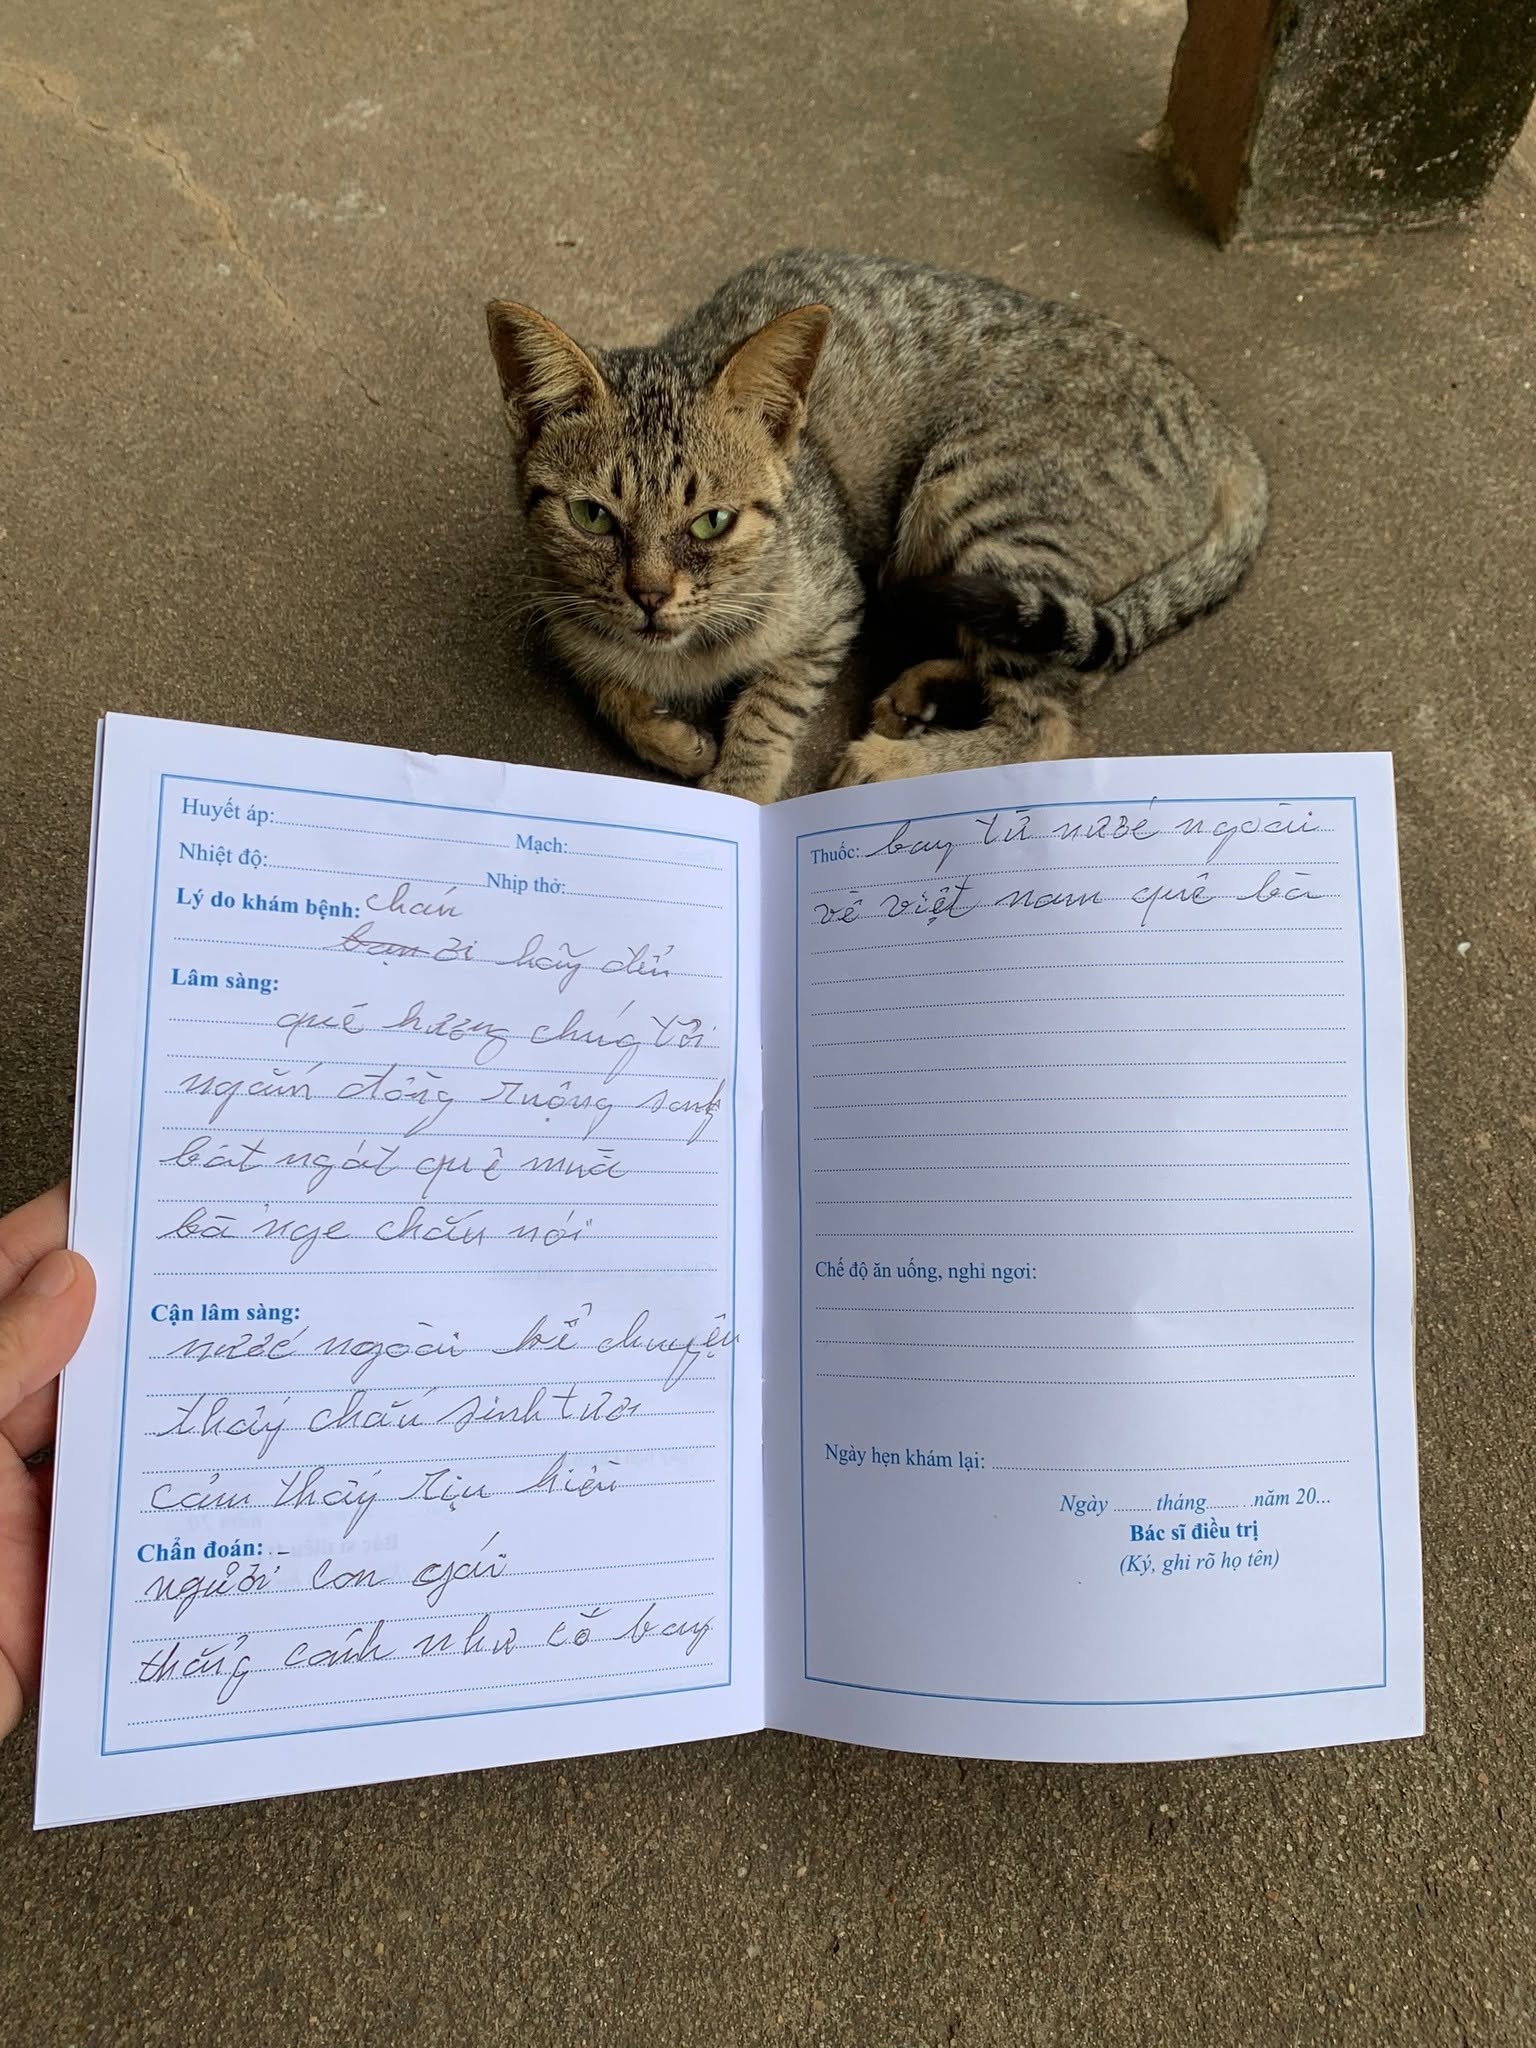 Huyết áp:
Mạch:
Nhiệt độ:
Nhịp thở:
Lý do khám bệnh: chán
bạn ơi hãy đến
Lâm sàng:
quê hương chúng tôi
ngắm đồng ruộng
bát ngát quê mùa
bà nge cháu nói
Cận lâm sàng:
nước ngoài kể chuyện
thấy cháu sinh tươi
cảm thấy rịu hiền
Chẩn đoán:
người con gái
thẳng cánh như cò bay
Thuốc: bay từ nước ngoài
về việt nam quê bà
Chế độ ăn uống, nghỉ ngơi:
Ngày hẹn khám lại:
Ngày ........ tháng........ năm 20...
Bác sĩ điều trị
(Ký, ghi rõ họ tên)